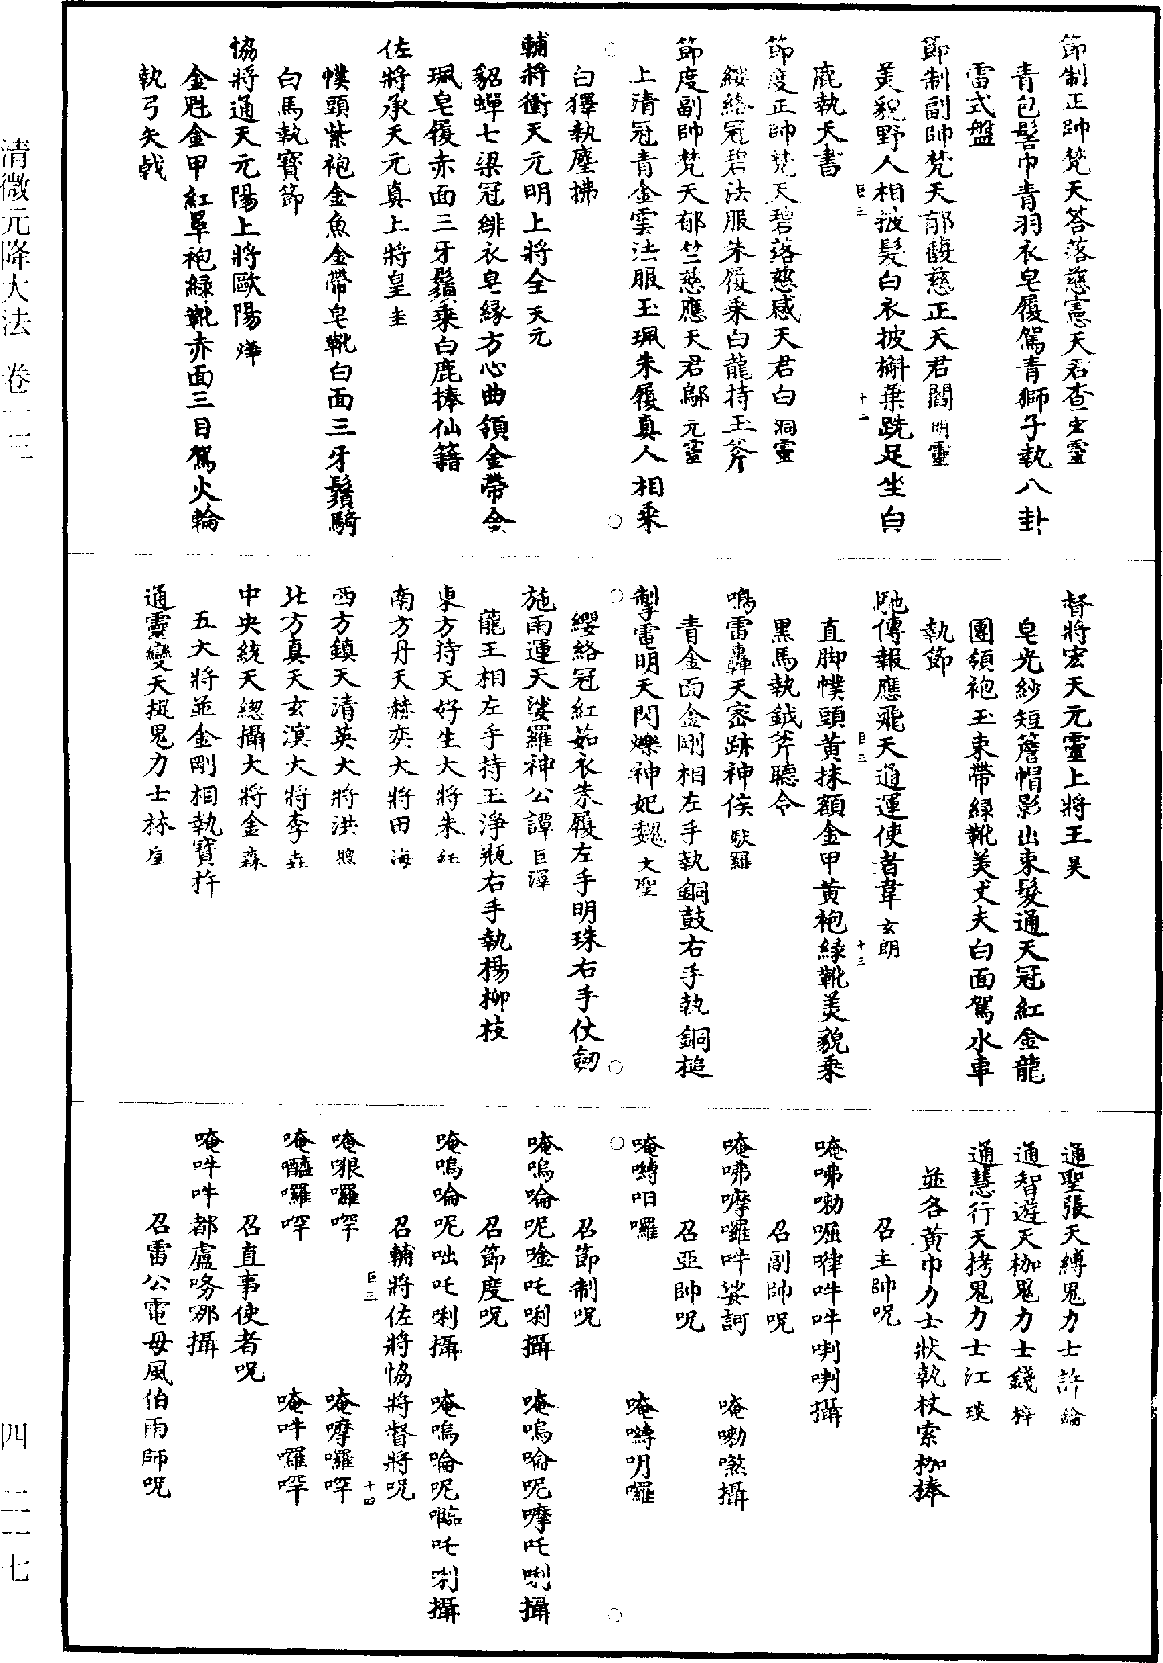 節制正帥梵天答落慈憲天君查宝靈
青包髻巾青羽衣皂履駕青獅子執八卦
雷式盤
節制副帥梵天郁馥慈正天君閻明靈
美貌野人相披髮白衣披槲葉跣足坐白
鹿執天書
節度正帥梵天碧落慈感天君白洞靈
纓絡冠碧法服朱履乘白龍持玉斧
節度副帥梵天郁竺慈應天君鄔元靈
上清冠青金雲法服玉珮朱履真人相乘
白獐執麈拂
輔將衝天元明上將全天元
貂蟬七梁冠緋衣皂緣方心曲領金帶金
珮皂履赤面三牙鬚乘白鹿捧仙籍
佐將承天元真上將皇圭
幞頭紫袍金魚金帶皂靴白面三牙鬚騎
白馬執寶節
協將通天元陽上將歐陽燁
金兜金甲紅罩袍綠靴赤面三目駕火輪
執弓矢戟
督將宏天元靈上將王昊
皂光紗短簷帽影出束髮通天冠紅金龍
團領袍玉束帶綠靴美丈夫白面駕水車
執節
馳傳報應飛天通運使者韋玄朗
直脚幞頭黃抹額金甲黃袍綠靴美貌乘
黑馬執鉞斧聽令
鳴雷轟天密跡神侯馱羅
青金面金剛相左手執銅鼓右手執銅槌
掣電明天閃爍神妃魏文聖
纓絡冠紅茹衣朱履左手明珠右手仗劒
施雨運天娑羅神公譚巨澤
龍王相左手持玉淨瓶右手執楊柳枝
東方待天好生大將朱
南方丹天赫奕大將田海
西方鎮天清英大將洪
北方真天玄溟大將李垚
中央統天總攝大將金森
五大將並金剛相執寶杵
通靈變天捉鬼力士林
通聖張天縛鬼力士許
通智遊天枷鬼力士錢梓
通慧行天拷鬼力士江瑛
並各黃巾力士狀執杖索枷棒
召主帥呪
唵咈嘞𠺁㗚吽吽唎唎攝
召副帥呪
唵咈嚩囉吽娑訶　唵嘞㘕攝
召亞帥呪
唵嚩呬囉　唵嚩明囉
召節制呪
唵嗚㖮呢唵吒唎攝　唵嗚㖮呢嚩吒唎攝
召節度呪
唵嗚㖮呢咄吒唎攝　唵嗚㖮呢吒唎攝
召輔將佐將協將督將呪
唵哏囉㗂　唵嚩囉㗂
唵囉㗂　唵吽囉㗂
召直事使者呪
唵吽吽都盧哪攝
召雷公電母風伯雨師呪
清微元降大法　卷一三
四　二一七